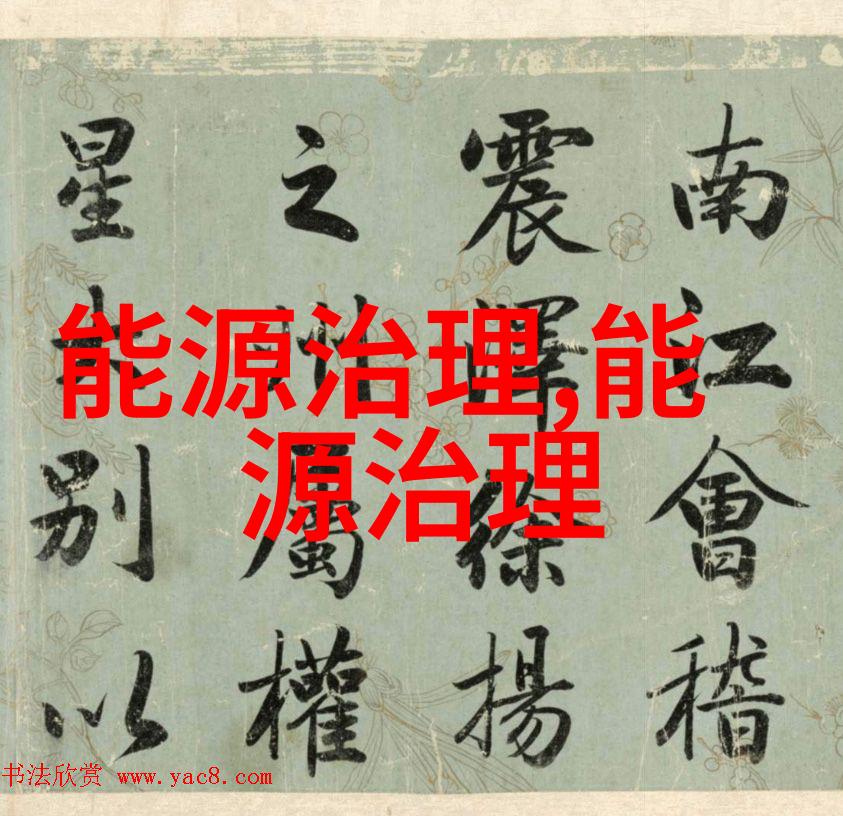 南江會稽
震徐揚
之屬權
星别以
能源治理,能
源治理
书法欣赏 www.yac8.com